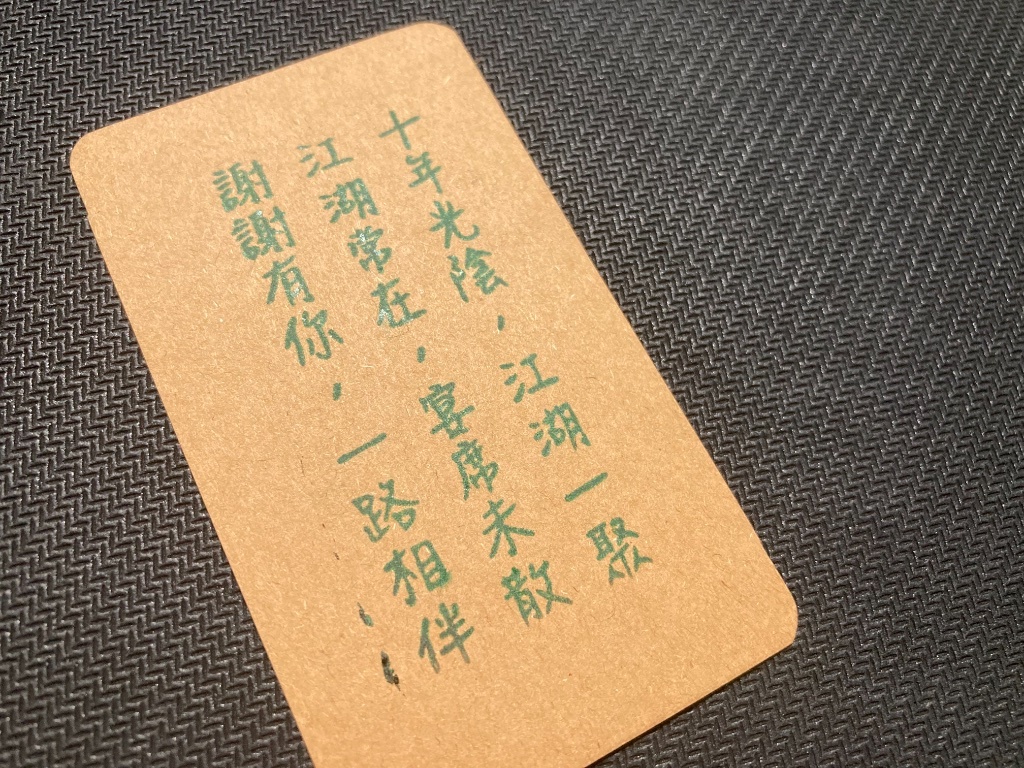 十年光陰，江湖一聚
江湖常在，宴席未散
謝謝有你，一路相伴